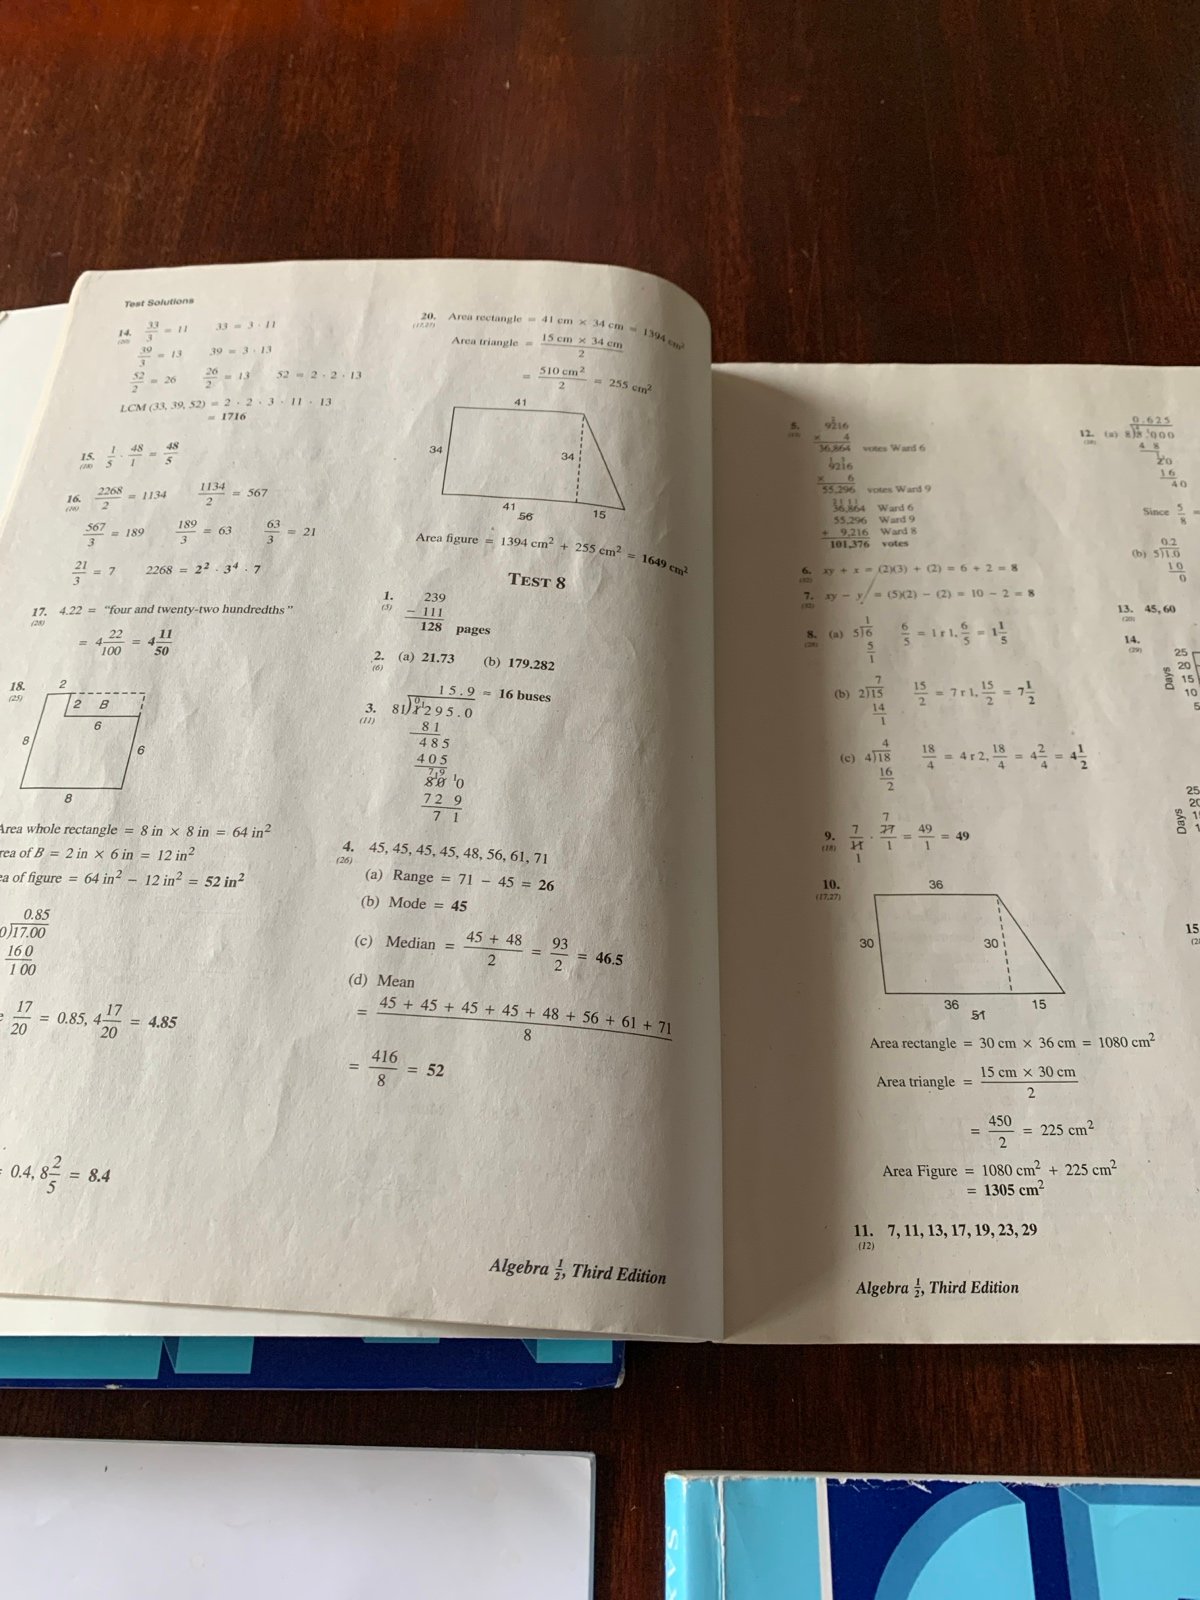 Test Solutions
14. 33/3 = 11 33 = 3 · 11
(20)
39/3 = 13 39 = 3 · 13
52/2 = 26 26/2 = 13 52 = 2 · 2 · 13
LCM (33, 39, 52) = 2 · 2 · 3 · 11 · 13
= 1716
15. 1/5 · 48/1 = 48/5
(18)
16. 2268/2 = 1134 1134/2 = 567
567/3 = 189 189/3 = 63 63/3 = 21
21/3 = 7 2268 = 2² · 3⁴ · 7
17. 4.22 = "four and twenty-two hundredths"
(28)
= 4 22/100 = 4 11/50
18.
(25)
2
2 B
6
8
6
8
Area whole rectangle = 8 in × 8 in = 64 in²
rea of B = 2 in × 6 in = 12 in²
ea of figure = 64 in² − 12 in² = 52 in²
0.85
0)17.00
16 0
1 00
17/20 = 0.85, 4 17/20 = 4.85
= 0.4, 8 2/5 = 8.4
20. Area rectangle = 41 cm × 34 cm = 1394 cm²
(17,27)
Area triangle = 15 cm × 34 cm/2
= 510 cm²/2 = 255 cm²
41
34
34
41
56
15
Area figure = 1394 cm² + 255 cm² = 1649 cm²
TEST 8
1. 239
(5)
− 111
128 pages
2. (a) 21.73 (b) 179.282
(6)
15.9 ≈ 16 buses
3. 81)1295.0
(11)
81
485
405
80 0
72 9
7 1
4. 45, 45, 45, 45, 48, 56, 61, 71
(26)
(a) Range = 71 − 45 = 26
(b) Mode = 45
(c) Median = 45 + 48/2 = 93/2 = 46.5
(d) Mean
= 45 + 45 + 45 + 45 + 48 + 56 + 61 + 71/8
= 416/8 = 52
Algebra ½, Third Edition
5. 9216
× 4
36,864 votes Ward 6
9216
× 6
55,296 votes Ward 9
36,864 Ward 6
55,296 Ward 9
+ 9,216 Ward 8
101,376 votes
6. xy + x = (2)(3) + (2) = 6 + 2 = 8
7. xy − y = (5)(2) − (2) = 10 − 2 = 8
8. (a) 5)6 6/5 = 1 r 1, 6/5 = 1 1/5
1
5
1
(b) 2)15 15/2 = 7 r 1, 15/2 = 7 1/2
7
14
1
(c) 4)18 18/4 = 4 r 2, 18/4 = 4 2/4 = 4 1/2
4
16
2
7
9. 7/11 · 77/1 = 49/1 = 49
(18)
1
10.
(17,27)
36
30
30
36
51
15
Area rectangle = 30 cm × 36 cm = 1080 cm²
Area triangle = 15 cm × 30 cm/2
= 450/2 = 225 cm²
Area Figure = 1080 cm² + 225 cm²
= 1305 cm²
11. 7, 11, 13, 17, 19, 23, 29
(12)
Algebra ½, Third Edition
0.625
12. (a) 8)5.000
4 8
20
16
40
Since 5/8 =
0.2
(b) 5)1.0
1 0
0
13. 45, 60
(20)
14.
(29)
Days
25
20
15
10
5
Days
25
15